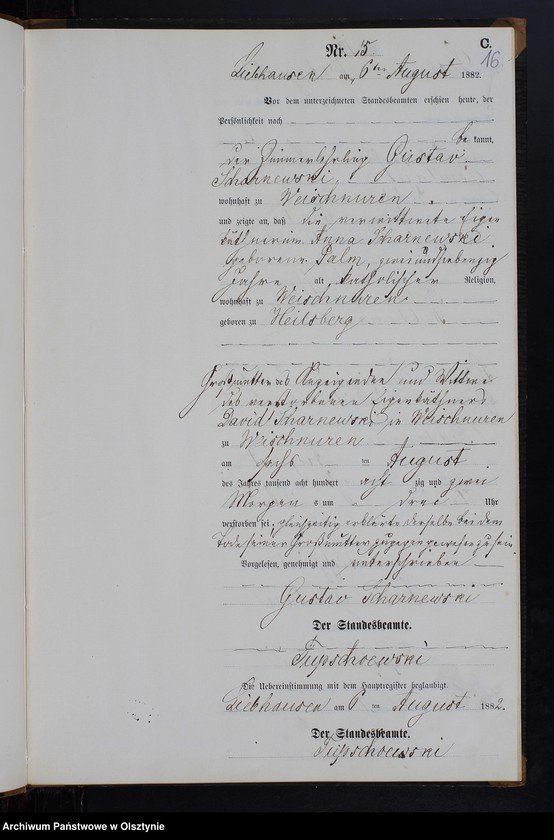 C.
Nr. 15.
16
Liebhausen am 6ten August 1882.
Vor dem unterzeichneten Standesbeamten erschien heute, der
Persönlichkeit nach
be kannt,
der Zimmerlehrling Gustav
Scharnewski,
wohnhaft zu Weischnuren
und zeigte an, daß die verwittwete Eigen
käthnerin Anna Scharnewski
geborene Palm, zweiundsiebenzig
Jahre alt, katholischer Religion,
wohnhaft zu Weischnuren
geboren zu Heilsberg
Großmutter des Anzeigenden und Wittwe
des verstorbenen Eigenkäthners
David Scharnewski in Weischnuren
zu Weischnuren
am sechs ten August
des Jahres tausend acht hundert acht zig und zwei
Morgens um drei Uhr
verstorben sei, gleichzeitig erklärte derselbe bei dem
Tode seiner Großmutter zugegen gewesen zu sein.
Vorgelesen, genehmigt und unterschrieben
Gustav Scharnewski
Der Standesbeamte.
Die Uebereinstimmung mit dem Hauptregister beglaubigt.
Liebhausen am 6 ten August 1882.
Der Standesbeamte.
Archiwum Państwowe w Olsztynie